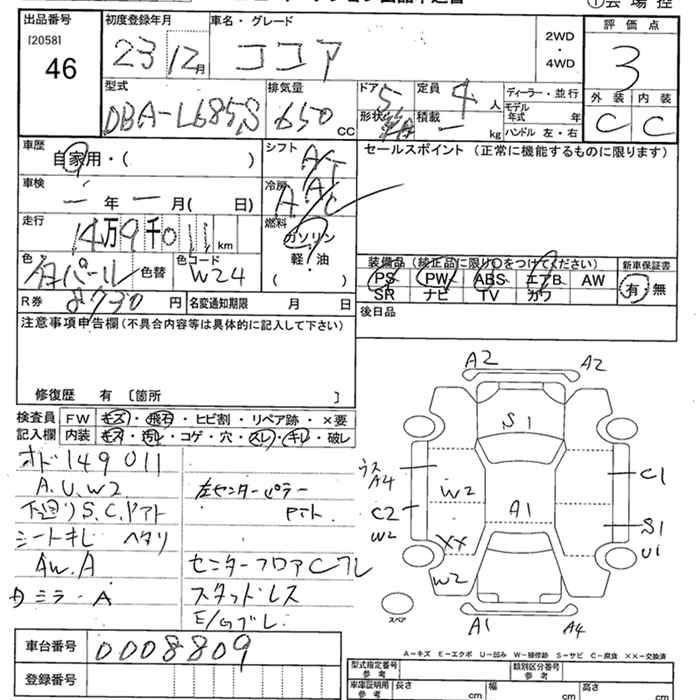 出品番号
[2058]
46
初度登録年月
23 12月
車名・グレード
ココア
2WD
・
4WD
評価点
3
外装 内装
C C
型式
DBA-L685S
排気量
650 CC
ドア 5
形状
定員 4 人
積載 ー kg
ディーラー・並行
モデル年式 年
ハンドル 左・右
車歴
自家用・( )
シフト AT
セールスポイント (正常に機能するものに限ります)
車検
ー年ー月( 日)
冷房 A/C
走行
14万9千011 km
燃料
ガソリン
軽・油
( )
色
パール
色替
色コード
W24
装備品(純正品に限り○をつけてください)
PS PW ABS エアB AW
SR ナビ TV カワ
新車保証書
有・無
R券 8730 円
名変通知期限 月 日
後日品
注意事項申告欄(不具合内容等は具体的に記入して下さい)
修復歴 有 〔箇所 〕
検査員 FW キズ・飛石・ヒビ割・リペア跡・×要
記入欄 内装 キズ・汚レ・コゲ・穴・スレ・キレ・破レ
オド149011
A.U.W2
下廻りS.C.ヤアト
シートキレ ヘタリ
AW.A
ミラーA
左センターピラー
ヤアト
センターフロアCフレ
スタッドレス
E/Gブレ
A2 A2
S1
ウス
A4
C1
W2
C2
W2
A1
S1
U1
XX
W2
スペア
A1 A4
A-キズ E-エクボ U-凹み W-補修跡 S-サビ C-腐食 XX-交換済
車台番号 0008809
登録番号
型式指定番号
参考
類別区分番号
参考
車庫証明用
参考
長さ cm
幅 cm
高さ cm